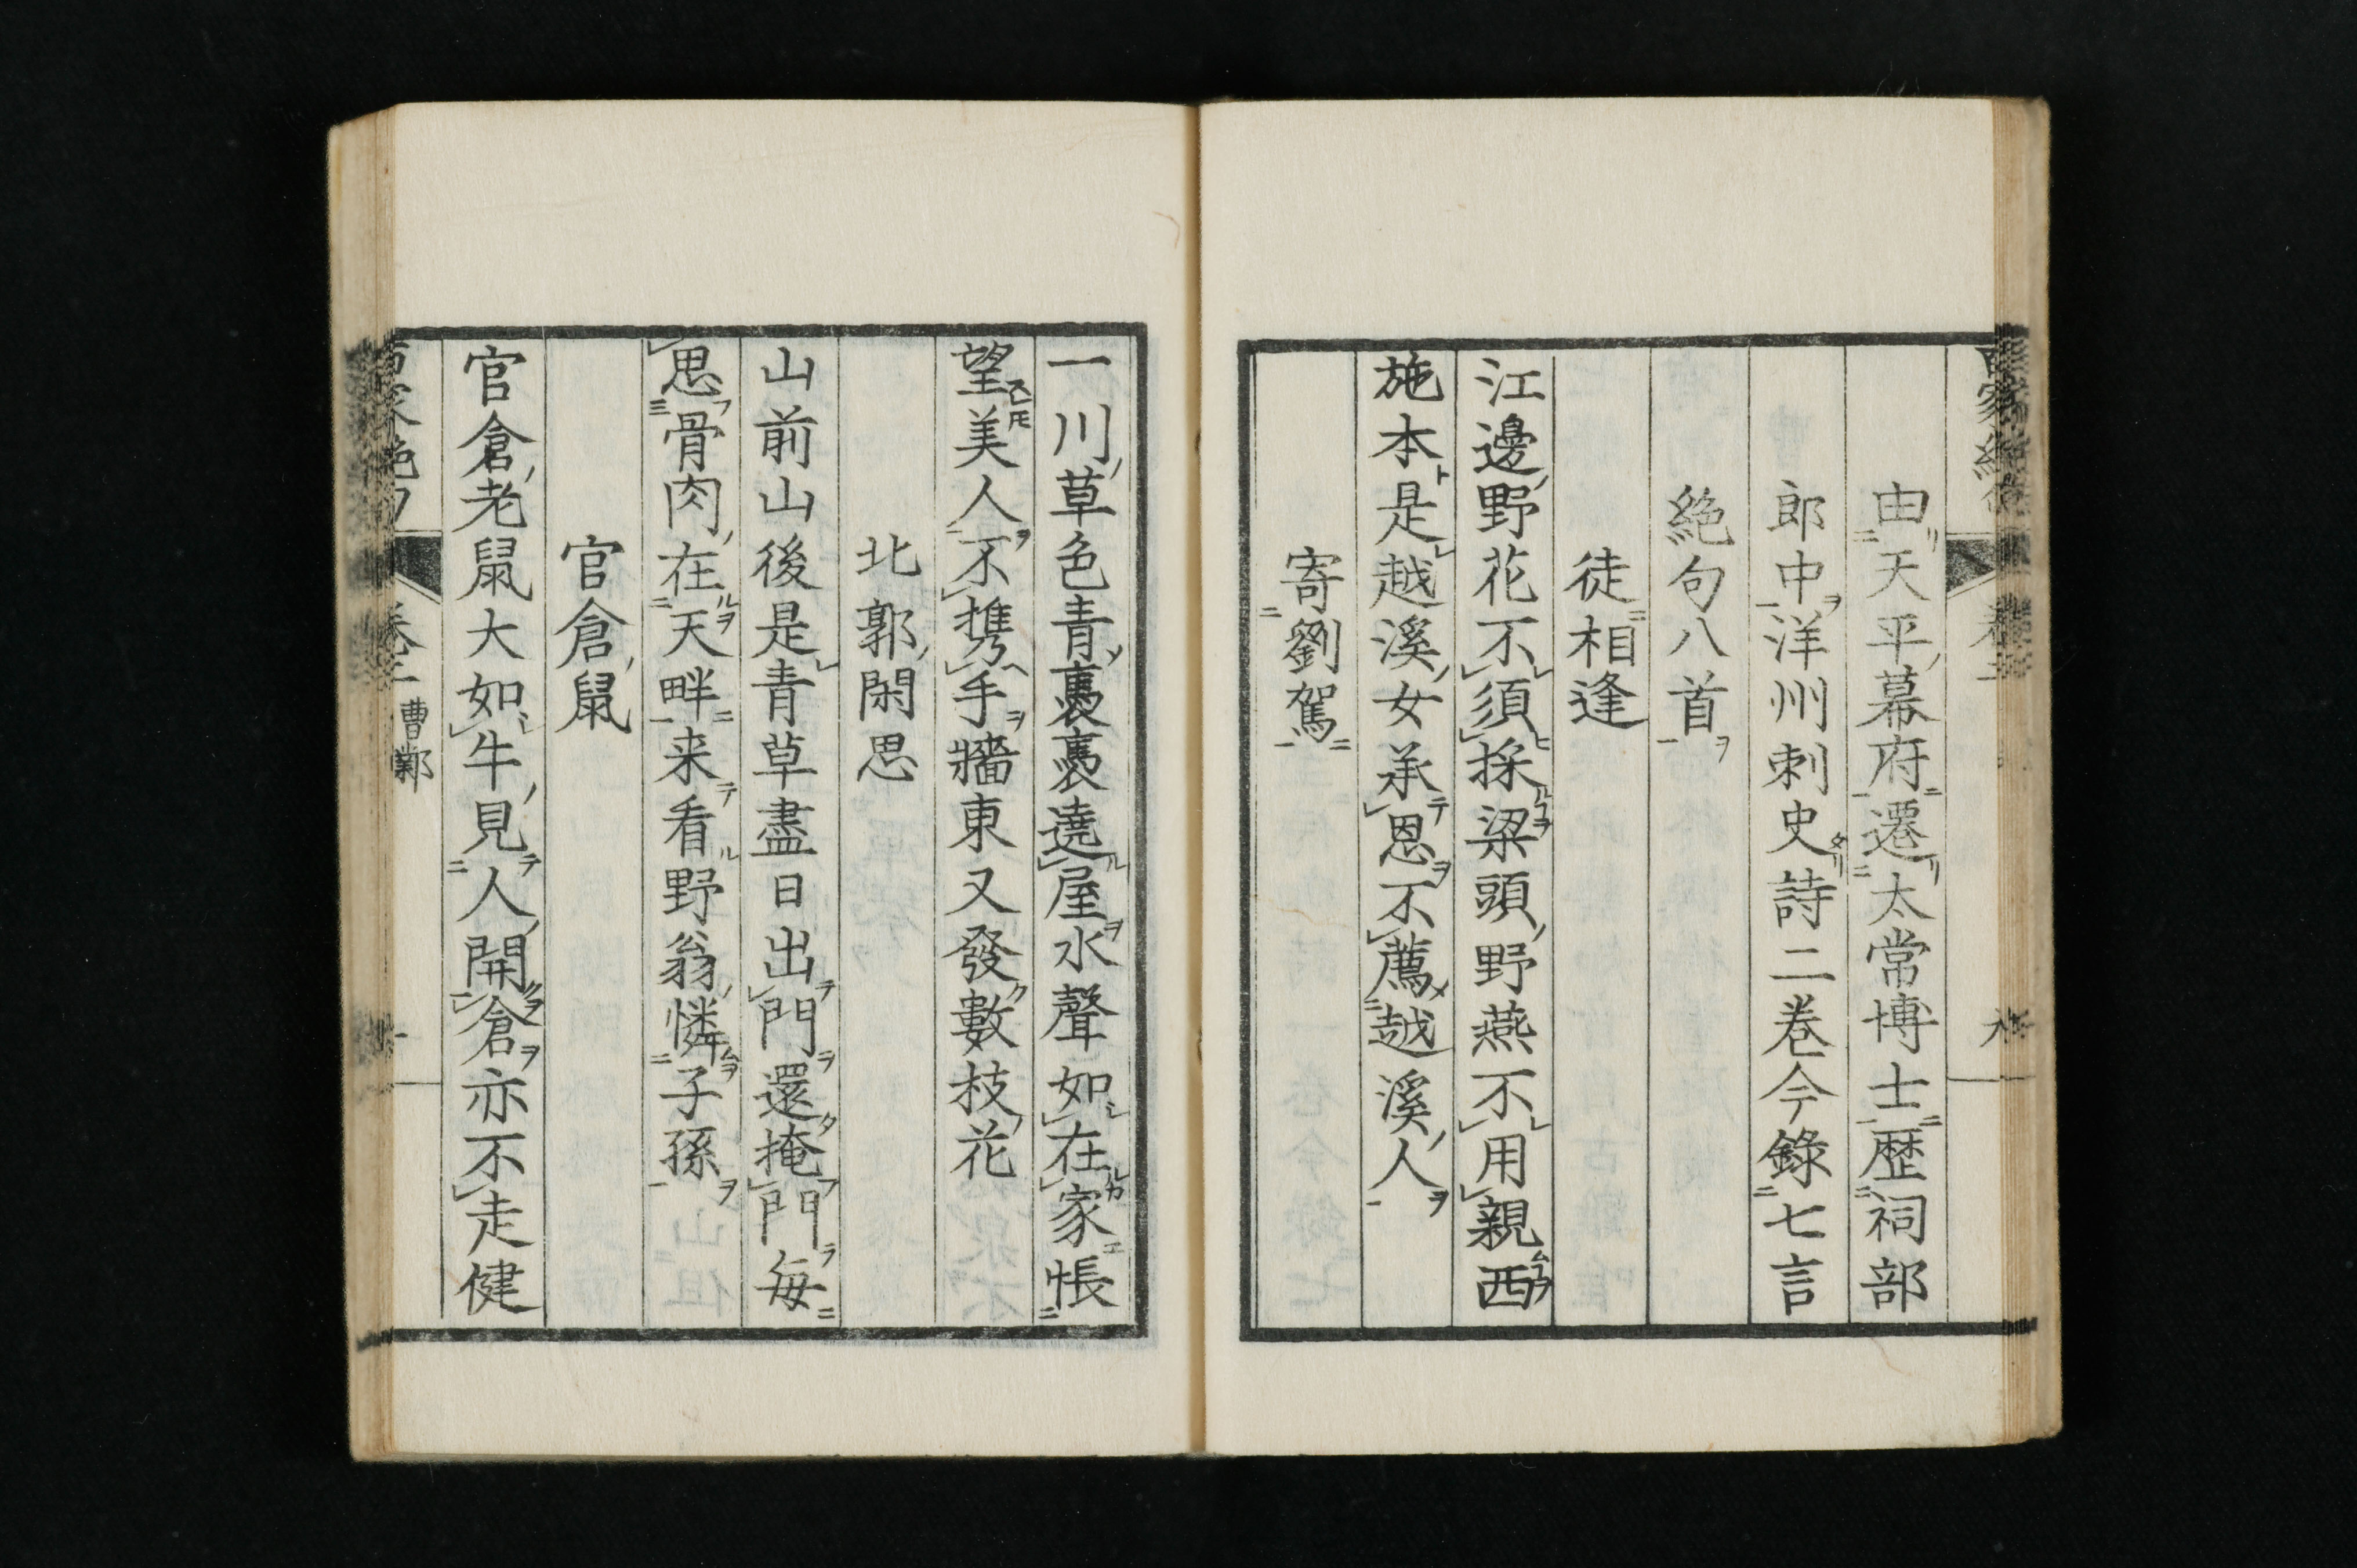 由天平幕府遷太常博士歴祠部
郎中洋州刺史詩二巻今錄七言
絶句八首
徒相逢
江邊野花不須採梁頭野燕不用親西
施本是越溪女承恩不薦越溪人
寄劉駕
一川草色青裊裊遶屋水聲如在家帳
望美人不携手牆東又發數枝花
北郭閑思
山前山後是青草盡日出門還掩門毎
思骨肉在天畔来看野翁憐子孫
官倉鼠
官倉老鼠大如牛見人開倉亦不走健
曹鄴